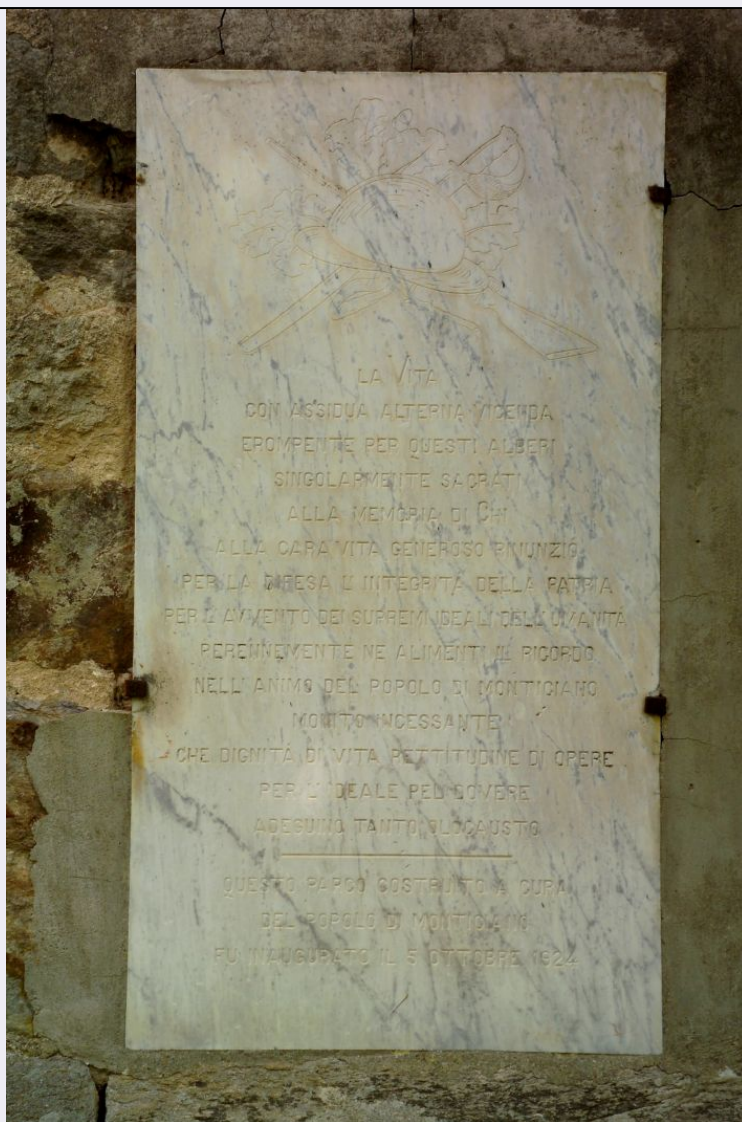 LA VITA
CON ASSIDUA ALTERNA VICENDA
EROMPENTE PER QUESTI ALBERI
SINGOLARMENTE SACRATI
ALLA MEMORIA DI CHI
ALLA CARA VITA GENEROSO RINUNZIÒ
PER LA DIFESA L'INTEGRITÀ DELLA PATRIA
PER L'AVVENTO DEI SUPREMI IDEALI DELL'UMANITÀ
PERENNEMENTE NE ALIMENTI IL RICORDO
NELL'ANIMO DEL POPOLO DI MONTICIANO
MONITO INCESSANTE
CHE DIGNITÀ DI VITA RETTITUDINE DI OPERE
PER L'IDEALE PEL DOVERE
ADEGUINO TANTO OLOCAUSTO
QUESTO PARCO COSTRUITO A CURA
DEL POPOLO DI MONTICIANO
FU INAUGURATO IL 5 OTTOBRE 1924